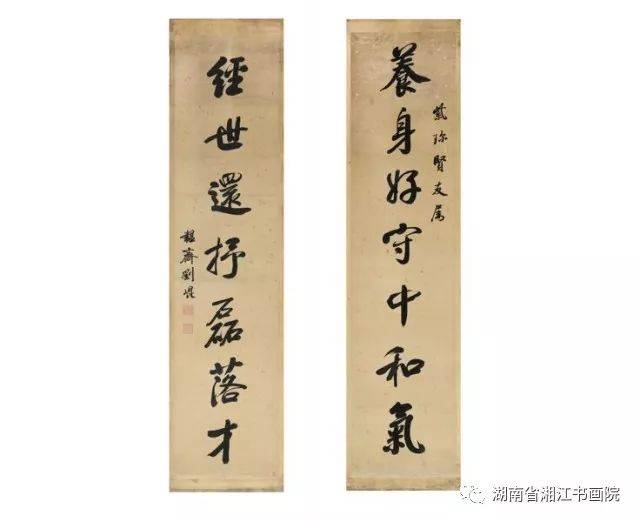 養身好守中和氣
紫珎賢友属
經世還抒磊落才
韞齋劉崐
湖南省湘江书画院